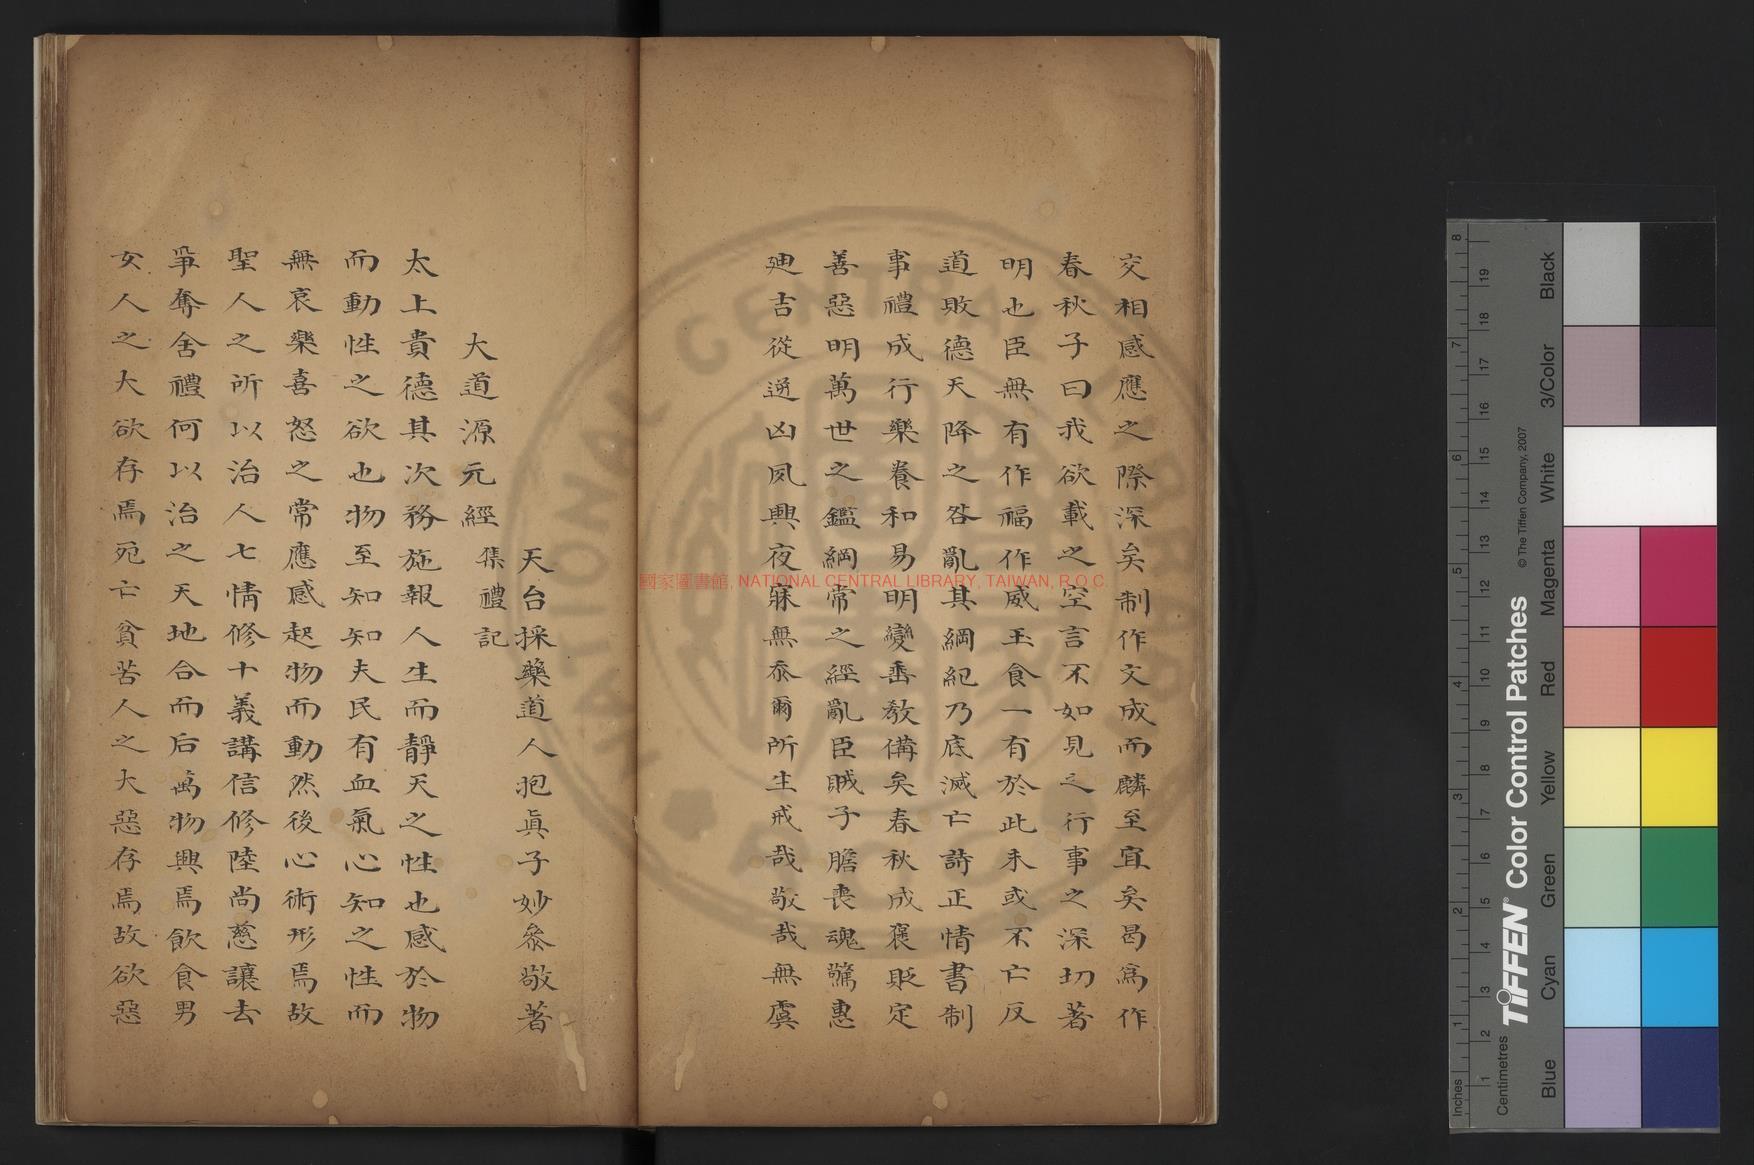 交相感應之際深矣制作文成而麟至宜矣曷為作
春秋子曰我欲載之空言不如見之行事之深切著
明也臣無有作福作威玉食一有於此未或不亡反
道敗德天降之咎亂其綱紀乃底滅亡詩正情書制
事禮成行樂養和易明變垂教備矣春秋成褒貶定
善惡明萬世之鑑綱常之經亂臣賊子膽喪魂驚惠
廸吉從逆凶夙興夜寐無忝爾所生戒哉敬哉無虞
天台採藥道人抱真子妙叅敬著
大道源元經 集禮記
太上貴德其次務施報人生而靜天之性也感於物
而動性之欲也物至知知夫民有血氣心知之性而
無哀樂喜怒之常應感起物而動然後心術形焉故
聖人之所以治人七情修十義講信修陸尚慈讓去
爭奪舍禮何以治之天地合而后萬物興焉飲食男
女人之大欲存焉死亡貧苦人之大惡存焉故欲惡
國家圖書館, NATIONAL CENTRAL LIBRARY, TAIWAN, R.O.C.
Inches
Centimetres
TIFFEN® Color Control Patches
© The Tiffen Company, 2007
Blue
Cyan
Green
Yellow
Red
Magenta
White
3/Color
Black